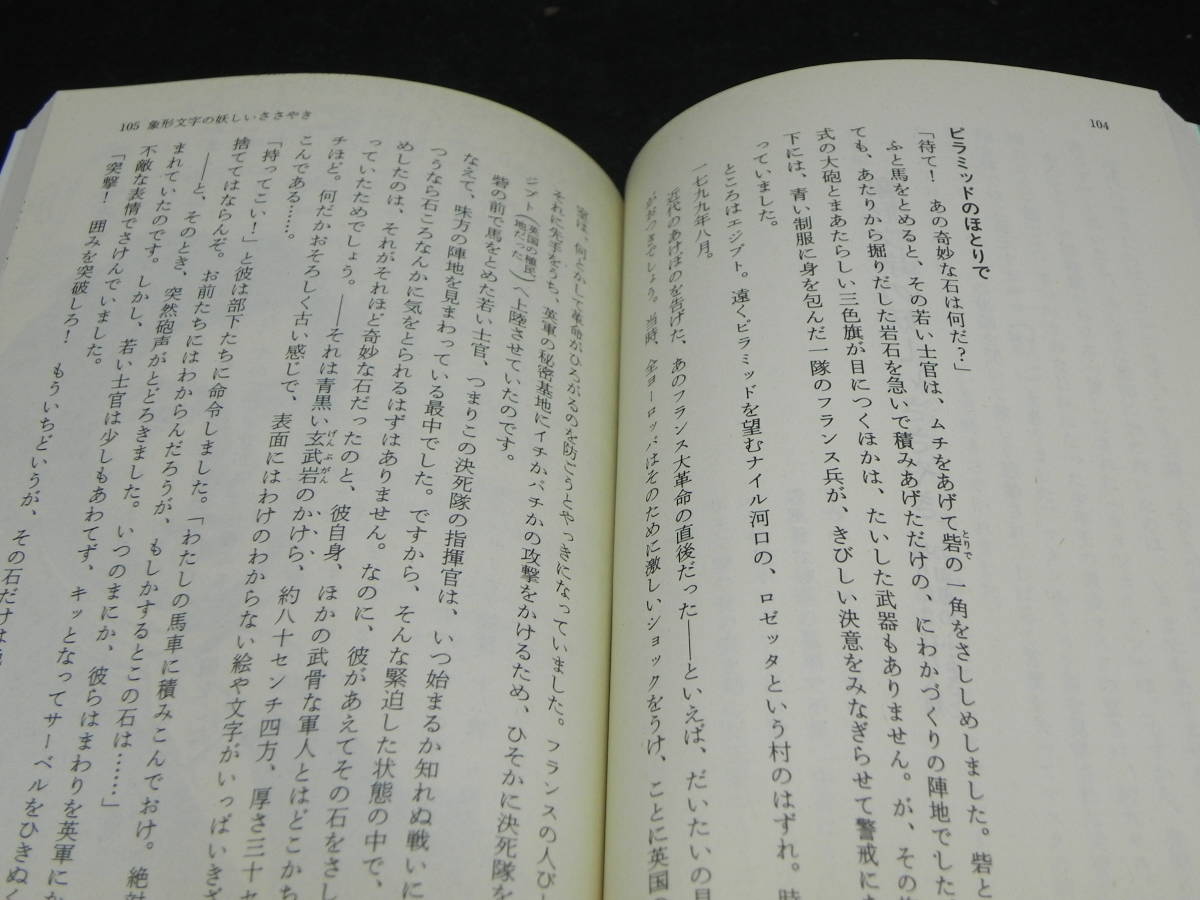 104
ピラミッドのほとりで
「待て！　あの奇妙な石は何だ？」
ふと馬をとめると、その若い士官は、ムチをあげて砦の一角をさししめしました。砦と
ても、あたりから掘りだした岩石を急いで積みあげただけの、にわかづくりの陣地でした
式の大砲とまあたらしい三色旗が目につくほかは、たいした武器もありません。が、その
下には、青い制服に身を包んだ一隊のフランス兵が、きびしい決意をみなぎらせて警戒に
っていました。
ところはエジプト。遠くピラミッドを望むナイル河口の、ロゼッタという村のはずれ。時
一七九九年八月。
近代のあけぼのを告げた、あのフランス大革命の直後だった――といえば、だいたいの見
がおつきでしょう。当時、全ヨーロッパはそのために激しいショックをうけ、ことに英国
105 象形文字の妖しいささやき
室は、何とかして革命がひろがるのを防ごうとやっきになっていました。フランスの人び
それに先手をうち、英軍の秘密基地にイチかバチかの攻撃をかけるため、ひそかに決死隊を
ジプト（英国の植民地だった）へ上陸させていたのです。
砦の前で馬をとめた若い士官、つまりこの決死隊の指揮官は、いつ始まるか知れぬ戦いに
なえて、味方の陣地を見まわっている最中でした。ですから、そんな緊迫した状態の中で、
つうなら石ころなんかに気をとられるはずはありません。なのに、彼があえてその石をさし
めしたのは、それがそれほど奇妙な石だったのと、彼自身、ほかの武骨な軍人とはどこかち
っていたためでしょう。――それは青黒い玄武岩のかけら、約八十センチ四方、厚さ三十セ
チほど。何だかおそろしく古い感じで、表面にはわけのわからない絵や文字がいっぱいきざ
こんである……。
「持ってこい！」と彼は部下たちに命令しました。「わたしの馬車に積みこんでおけ。絶対
捨ててはならんぞ。お前たちにはわからんだろうが、もしかするとこの石は……」
――と、そのとき、突然砲声がとどろきました。いつのまにか、彼らはまわりを英軍に
まれていたのです。しかし、若い士官は少しもあわてず、キッとなってサーベルをひきぬく
不敵な表情でさけんでいました。
「突撃！　囲みを突破しろ！　もういちどいうが、その石だけは